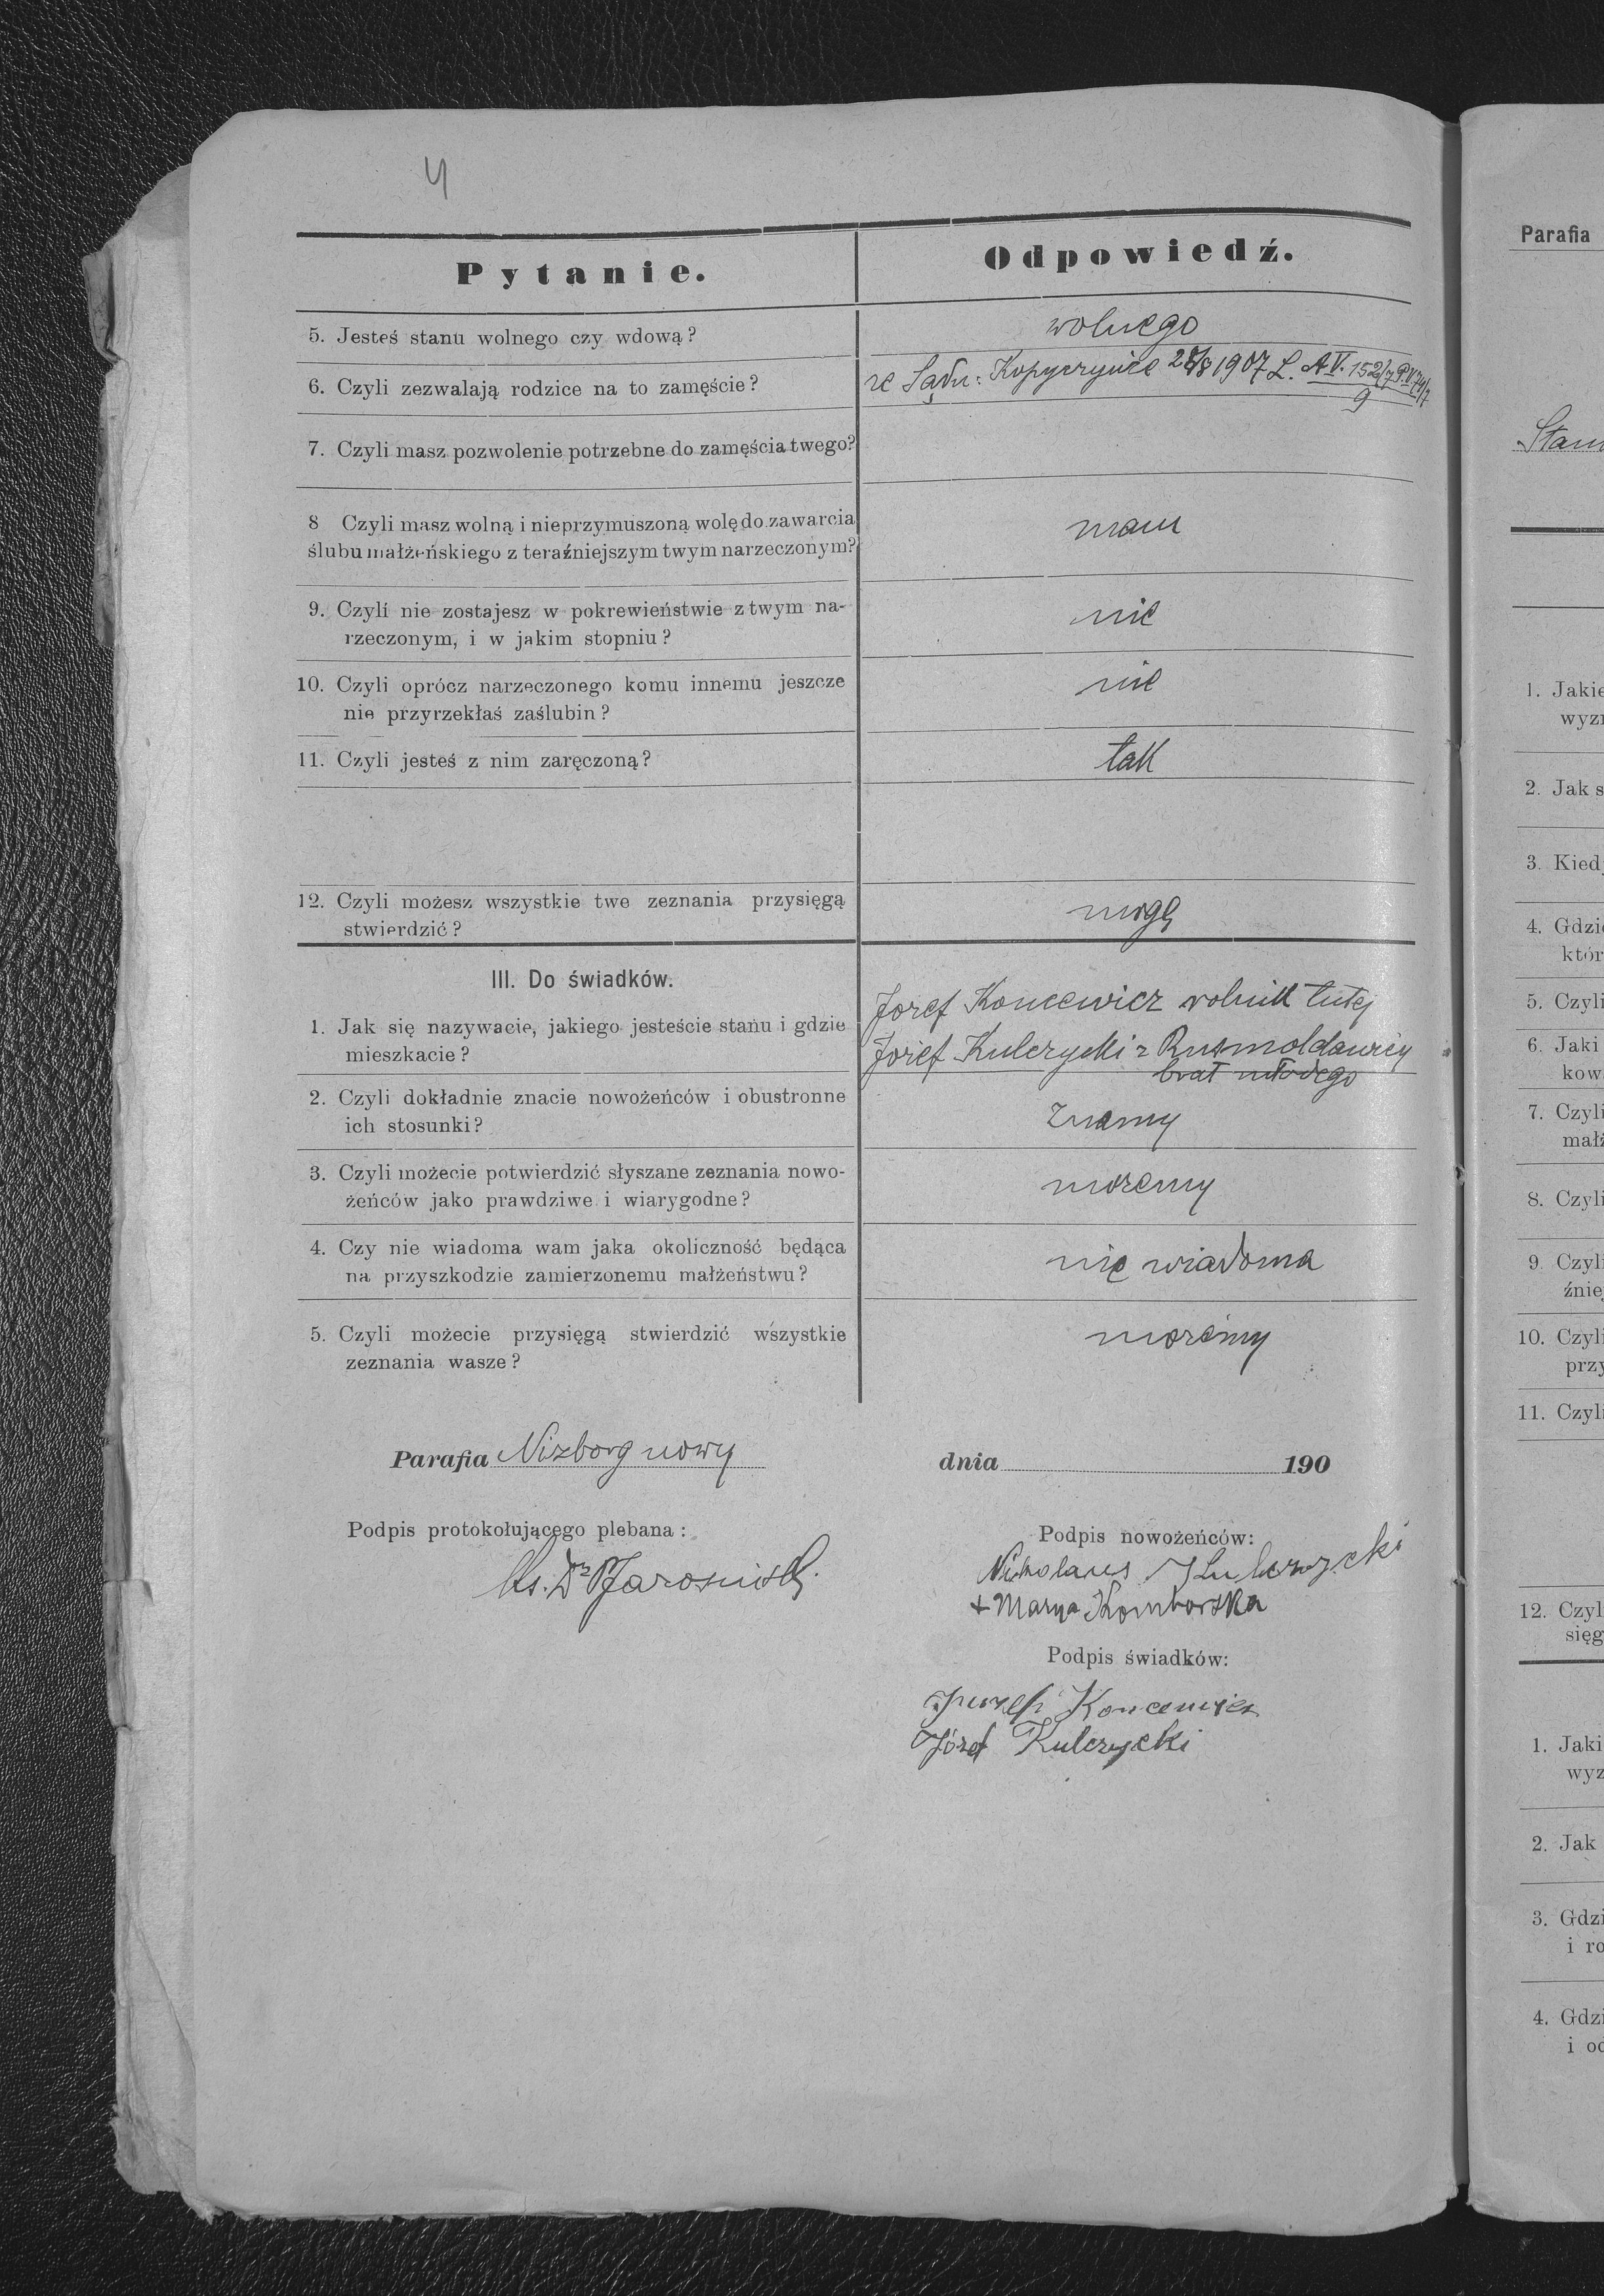 4
Pytanie.
Odpowiedź.
5. Jesteś stanu wolnego czy wdową?
wolnego
6. Czyli zezwalają rodzice na to zamęście?
ze Sądu: Kopyczyńce 1907 L. A.V. 152/7
9
7. Czyli masz pozwolenie potrzebne do zamęścia twego?
8 Czyli masz wolną i nieprzymuszoną wolę do zawarcia
ślubu małżeńskiego z teraźniejszym twym narzeczonym?
mam
9. Czyli nie zostajesz w pokrewieństwie z twym na-
rzeczonym, i w jakim stopniu?
nie
10. Czyli oprócz narzeczonego komu innemu jeszcze
nie przyrzekłaś zaślubin?
nie
11. Czyli jesteś z nim zaręczoną?
tak
12. Czyli możesz wszystkie twe zeznania przysięgą
stwierdzić?
mogę
III. Do świadków.
1. Jak się nazywacie, jakiego jesteście stanu i gdzie
mieszkacie?
Jozef Koncewicz rolnik tutej
Józef Kulczycki z Rusmoldawicy
brat młodego
2. Czyli dokładnie znacie nowożeńców i obustronne
ich stosunki?
znamy
3. Czyli możecie potwierdzić słyszane zeznania nowo-
żeńców jako prawdziwe i wiarygodne?
możemy
4. Czy nie wiadoma wam jaka okoliczność będąca
na przyszkodzie zamierzonemu małżeństwu?
nie wiadoma
5. Czyli możecie przysięgą stwierdzić wszystkie
zeznania wasze?
możemy
Parafia Nizborg nowy
dnia 190
Podpis protokołującego plebana:
Ks. Dr
Podpis nowożeńców:
Nikolaus Kulczycki
+ Marya Komborska
Podpis świadków:
Juzef Koncewicz
Józef Kulczycki
Parafia
1. Jakie
wyzn
2. Jak s
3. Kied
4. Gdzie
któr
5. Czyli
6. Jaki
kow
7. Czyli
małż
8. Czyli
9. Czyli
źniej
10. Czyli
przy
11. Czyli
12. Czyl
sięg
1. Jaki
wyz
2. Jak
3. Gdzi
i ro
4. Gdzi
i oc